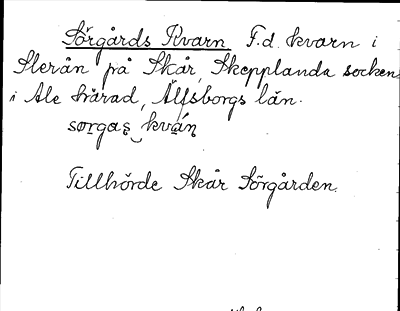 Sörgårds Kvarn F.d. kvarn i
Slerån på Skår, Skepplanda socken
i Ale härad, Älfsborgs län.
Tillhörde Skår Sörgården.